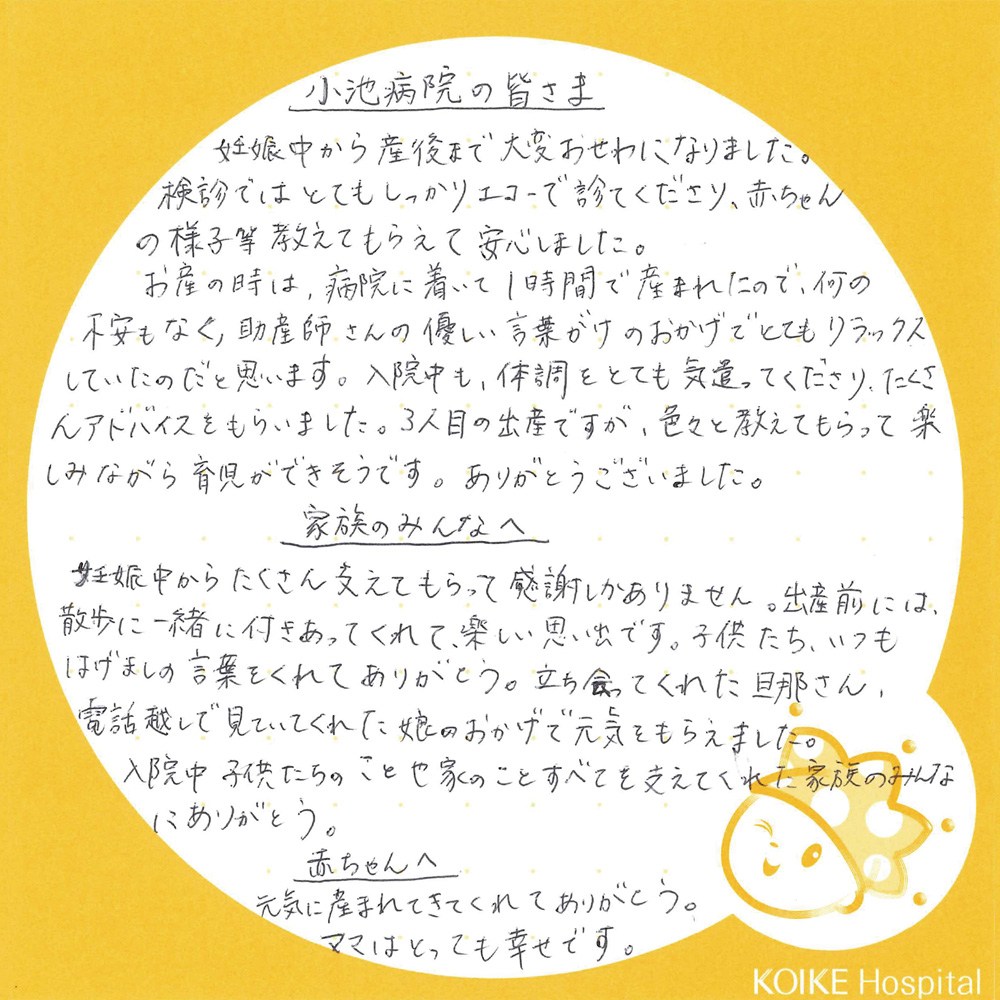 小池病院の皆さま
妊娠中から産後まで大変おせわになりました。
検診ではとてもしっかりエコーで診てくださり、赤ちゃん
の様子等教えてもらえて安心しました。
お産の時は、病院に着いて1時間で産まれたので、何の
不安もなく、助産師さんの優しい言葉がけのおかげでとてもリラックス
していたのだと思います。入院中も、体調をとても気遣ってくださり、たくさ
んアドバイスをもらいました。3人目の出産ですが、色々と教えてもらって楽
しみながら育児ができそうです。ありがとうございました。
家族のみんなへ
妊娠中からたくさん支えてもらって感謝しかありません。出産前には、
散歩に一緒に付きあってくれて、楽しい思い出です。子供たち、いつも
はげましの言葉をくれてありがとう。立ち会ってくれた旦那さん、
電話越しで見ていてくれた娘のおかげで元気をもらえました。
入院中子供たちのことや家のことすべてを支えてくれた家族のみんな
にありがとう。
赤ちゃんへ
元気に産まれてきてくれてありがとう。
ママはとっても幸せです。
KOIKE Hospital